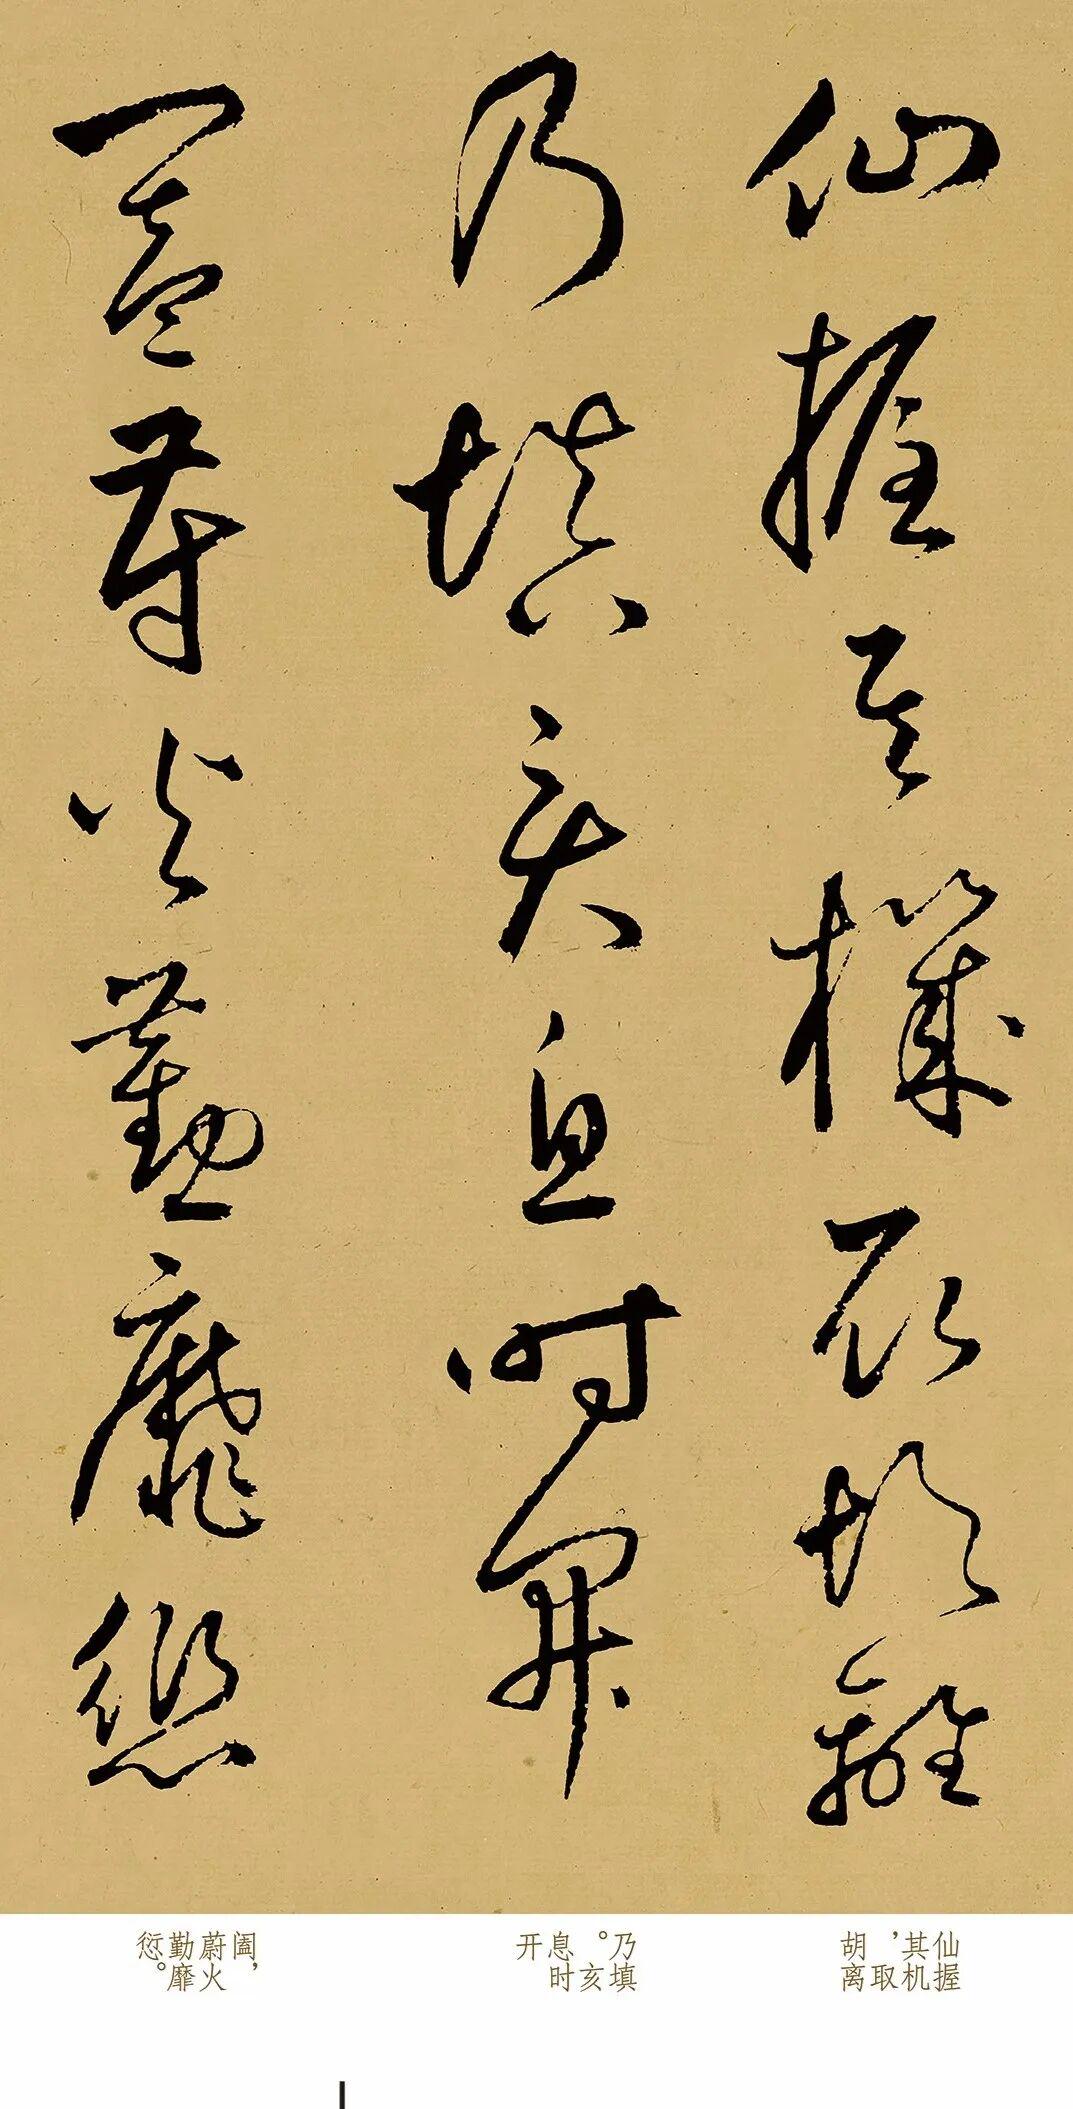 仙握其机取胡离
乃填亥息时开
阖蔚火勤靡愆
仙握
其机
，取
胡离
乃填
。亥
息时
开
阖，
蔚火
勤靡
愆。